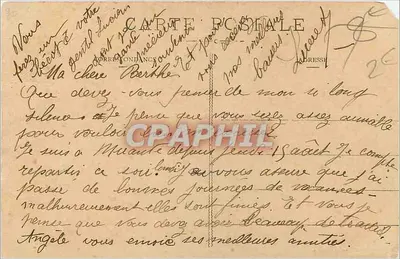 CARTE POSTALE
CORRESPONDANCE
ADRESSE
Vous
ferez un
à votre
gentil Lucien
dont je
garde un
souvenir
Et pour
vous recevez
mes meilleurs
baisers
2€
Ma chère Berthe
Que devez-vous penser de mon si long
silence Je pense que vous serez assez aimable
pour vouloir
CPARHIL
Je suis à depuis jeudi 15 août Je compte
repartir ce soir lundi vous assure que j'ai
passé de bonnes journées de vacances
malheureusement elles sont finies. Et vous je
pense que vous devez avoir beaucoup de travail.
Angèle vous envoie ses meilleures amitiés.